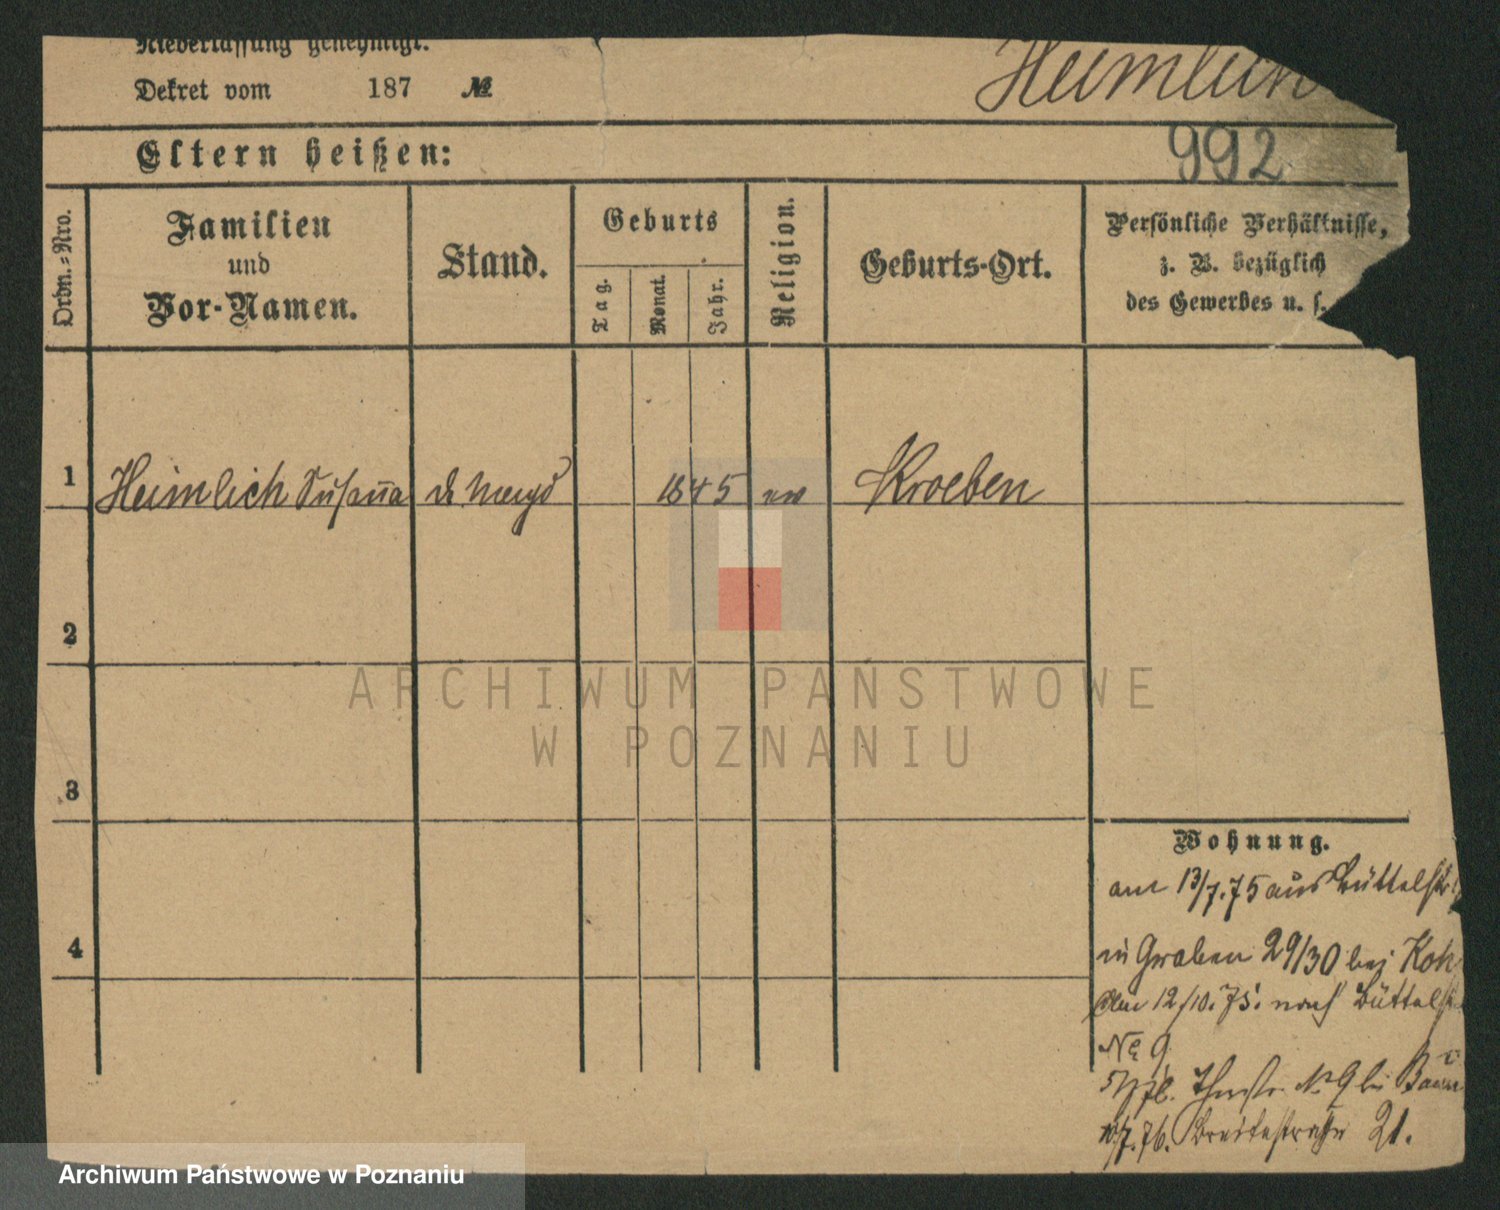 Niederlassung genehmigt.
Dekret vom 187 №
Heimlich
992
Eltern heißen:
Ordn.=Nro.
Familien
und
Vor-Namen.
Stand.
Geburts
Tag.
Monat.
Jahr.
Religion.
Geburts-Ort.
Persönliche Verhältnisse,
z. B. bezüglich
des Gewerbes u. s.
1 Heimlich Susanna d. Magd 1845 ev Kroeben
2
3
4
Wohnung.
am 13/7.75 aus Büttelstr
in Graben 29/30 bei Koh
Am 12/10.75. nach Büttelst
No 9
№ 9 bei
/7.76. Breitestraße 21.
ARCHIWUM PAŃSTWOWE
W POZNANIU
Archiwum Państwowe w Poznaniu